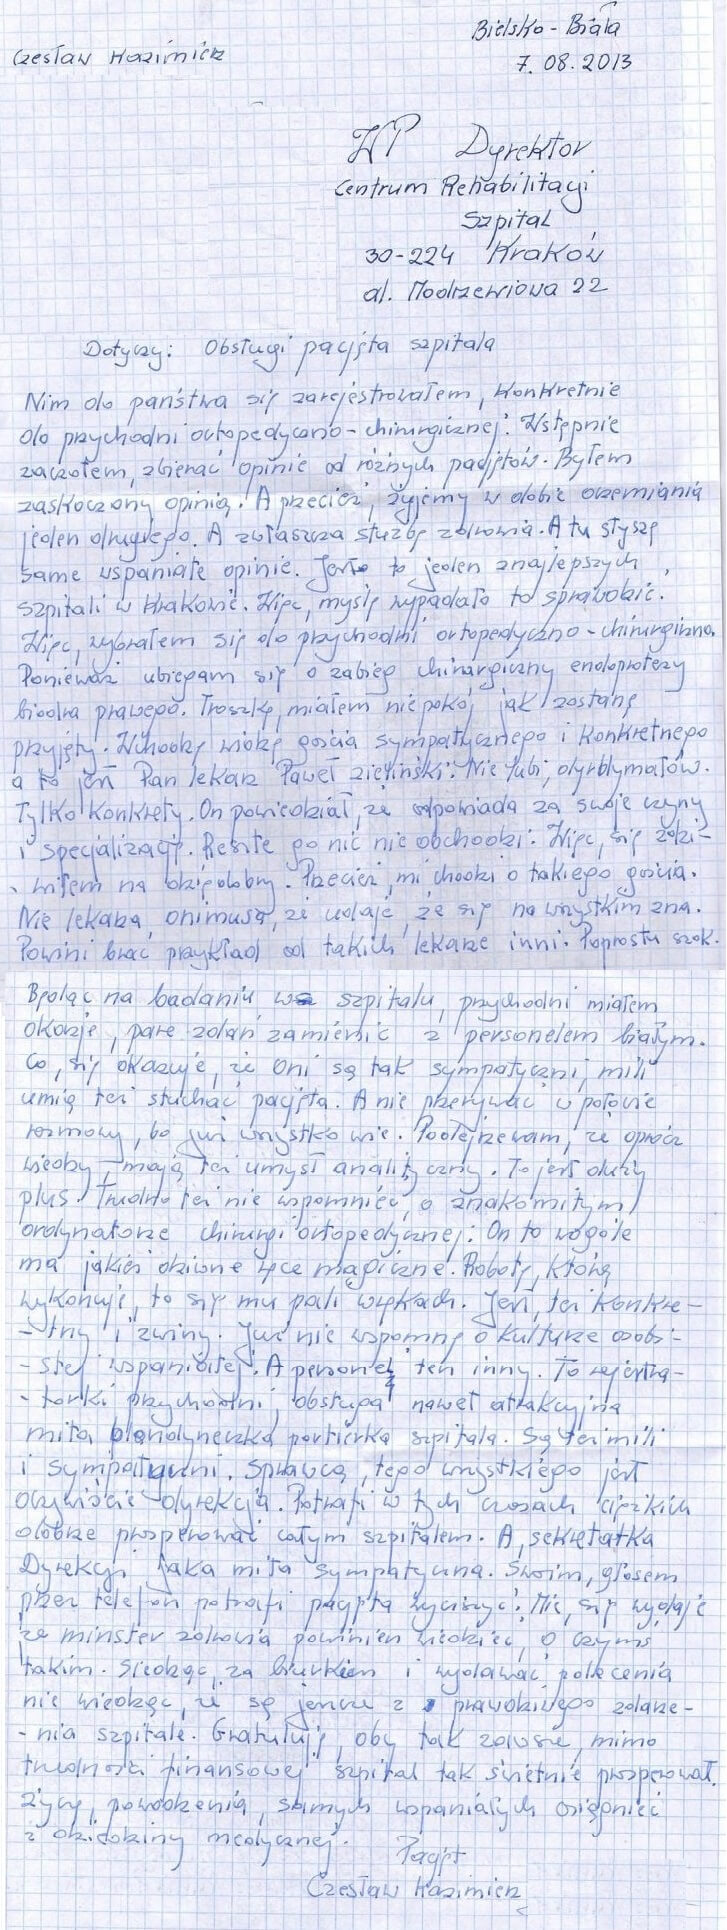 Bielsko-Biała
Czesław Kazimierz
7.08.2013
WP Dyrektor
Centrum Rehabilitacji
Szpital
30-224 Kraków
al. Modrzewiowa 22
Dotyczy: Obsługi pacjęta szpitala
Nim do państwa się zarejestrowałem, konkretnie
do przychodni ortopedyczno-chirurgicznej. Wstępnie
zaczołem, zbierać opinie od różnych pacjętów. Byłem
zaskoczony opinią. A przecież, żyjemy w dobie oczerniania
jeden drugiego. A zwłaszcza służbę zdrowia. A tu słyszę
same wspaniałe opinie. to jeden znajlepszych
szpitali w Krakowie. Więc, myślę wypadało to sprawdzić.
Więc, wybrałem się do przychodni ortopedyczno-chirurgiczno.
Ponieważ ubiegam się o zabieg chirurgiczny endoprotezy
biodra prawego. Troszkę, miałem niepokój jak zostanę
przyjęty. Wchodzę widzę gościa sympatycznego i konkretnego
a to jest Pan lekarz Paweł Zieliński. Nie lubi, dyrdymałów.
Tylko konkrety. On powiedział, że odpowiada za swoje czyny
i specjalizację. Reszte go nic nie obchodzi. Więc, się zdzi-
- wiłem na dzieńdobry. Przecież, mi chodzi o takiego gościa.
Nie lekarza, omnibusa, że udaje, że się na wszystkim zna.
Powini brać przykład od takich lekarze inni. Poprostu szok.
Będąc na badaniu w szpitalu, przychodni miałem
okazje, pare zdań zamienić z personelem białym.
Co, się okazuje, że oni są tak sympatyczni, mili
umią też słuchać pacjęta. A nie przerywać w połowie
rozmowy, bo już wszystko wie. Podejrzewam, że oprócz
wiedzy, mają też umysł analityczny. To jest duży
plus. Trudno też nie wspomnieć, o znakomitym
ordynatorze chirurgi ortopedycznej. On to wogóle
ma jakieś dziwne ręce magiczne. Robotę, którą
wykonuje, to się mu pali wrękach. Jest, też konkre-
- tny i zwiny. Już nie wspomnę o kulturze osobi-
- stej wspaniałej. A personel ten inny. To rejestra-
- torki przychodni, obsługa nawet atrakcyjna
miła blondyneczka portierka szpitala. Są też mili
i sympatyczni. Sprawcą, tego wszystkiego jest
oczywiście dyrekcja. Potrafi w tych czasach ciężkich
dobrze prosperować całym szpitalem. A, sekretarka
Dyrekcji jaka miła sympatyczna. Swoim, głosem
przez telefon potrafi pacjęta wyciszyć. Mie, się wydaje
że minster zdrowia powinien wiedzieć, o czymś
takim. Siedząc, za biurkiem i wydawać polecenia
nie wiedząc, że są jeszcze z prawdziwego zdarze-
- nia szpitale. Gratuluję, oby tak zawsze, mimo
trudności finansowej szpital tak świetnie prosperował.
Życzę, powodzenia, samych wspaniałych osięgnięć
z dziedziny medycznej.
Pacjęt
Czesław Kazimierz